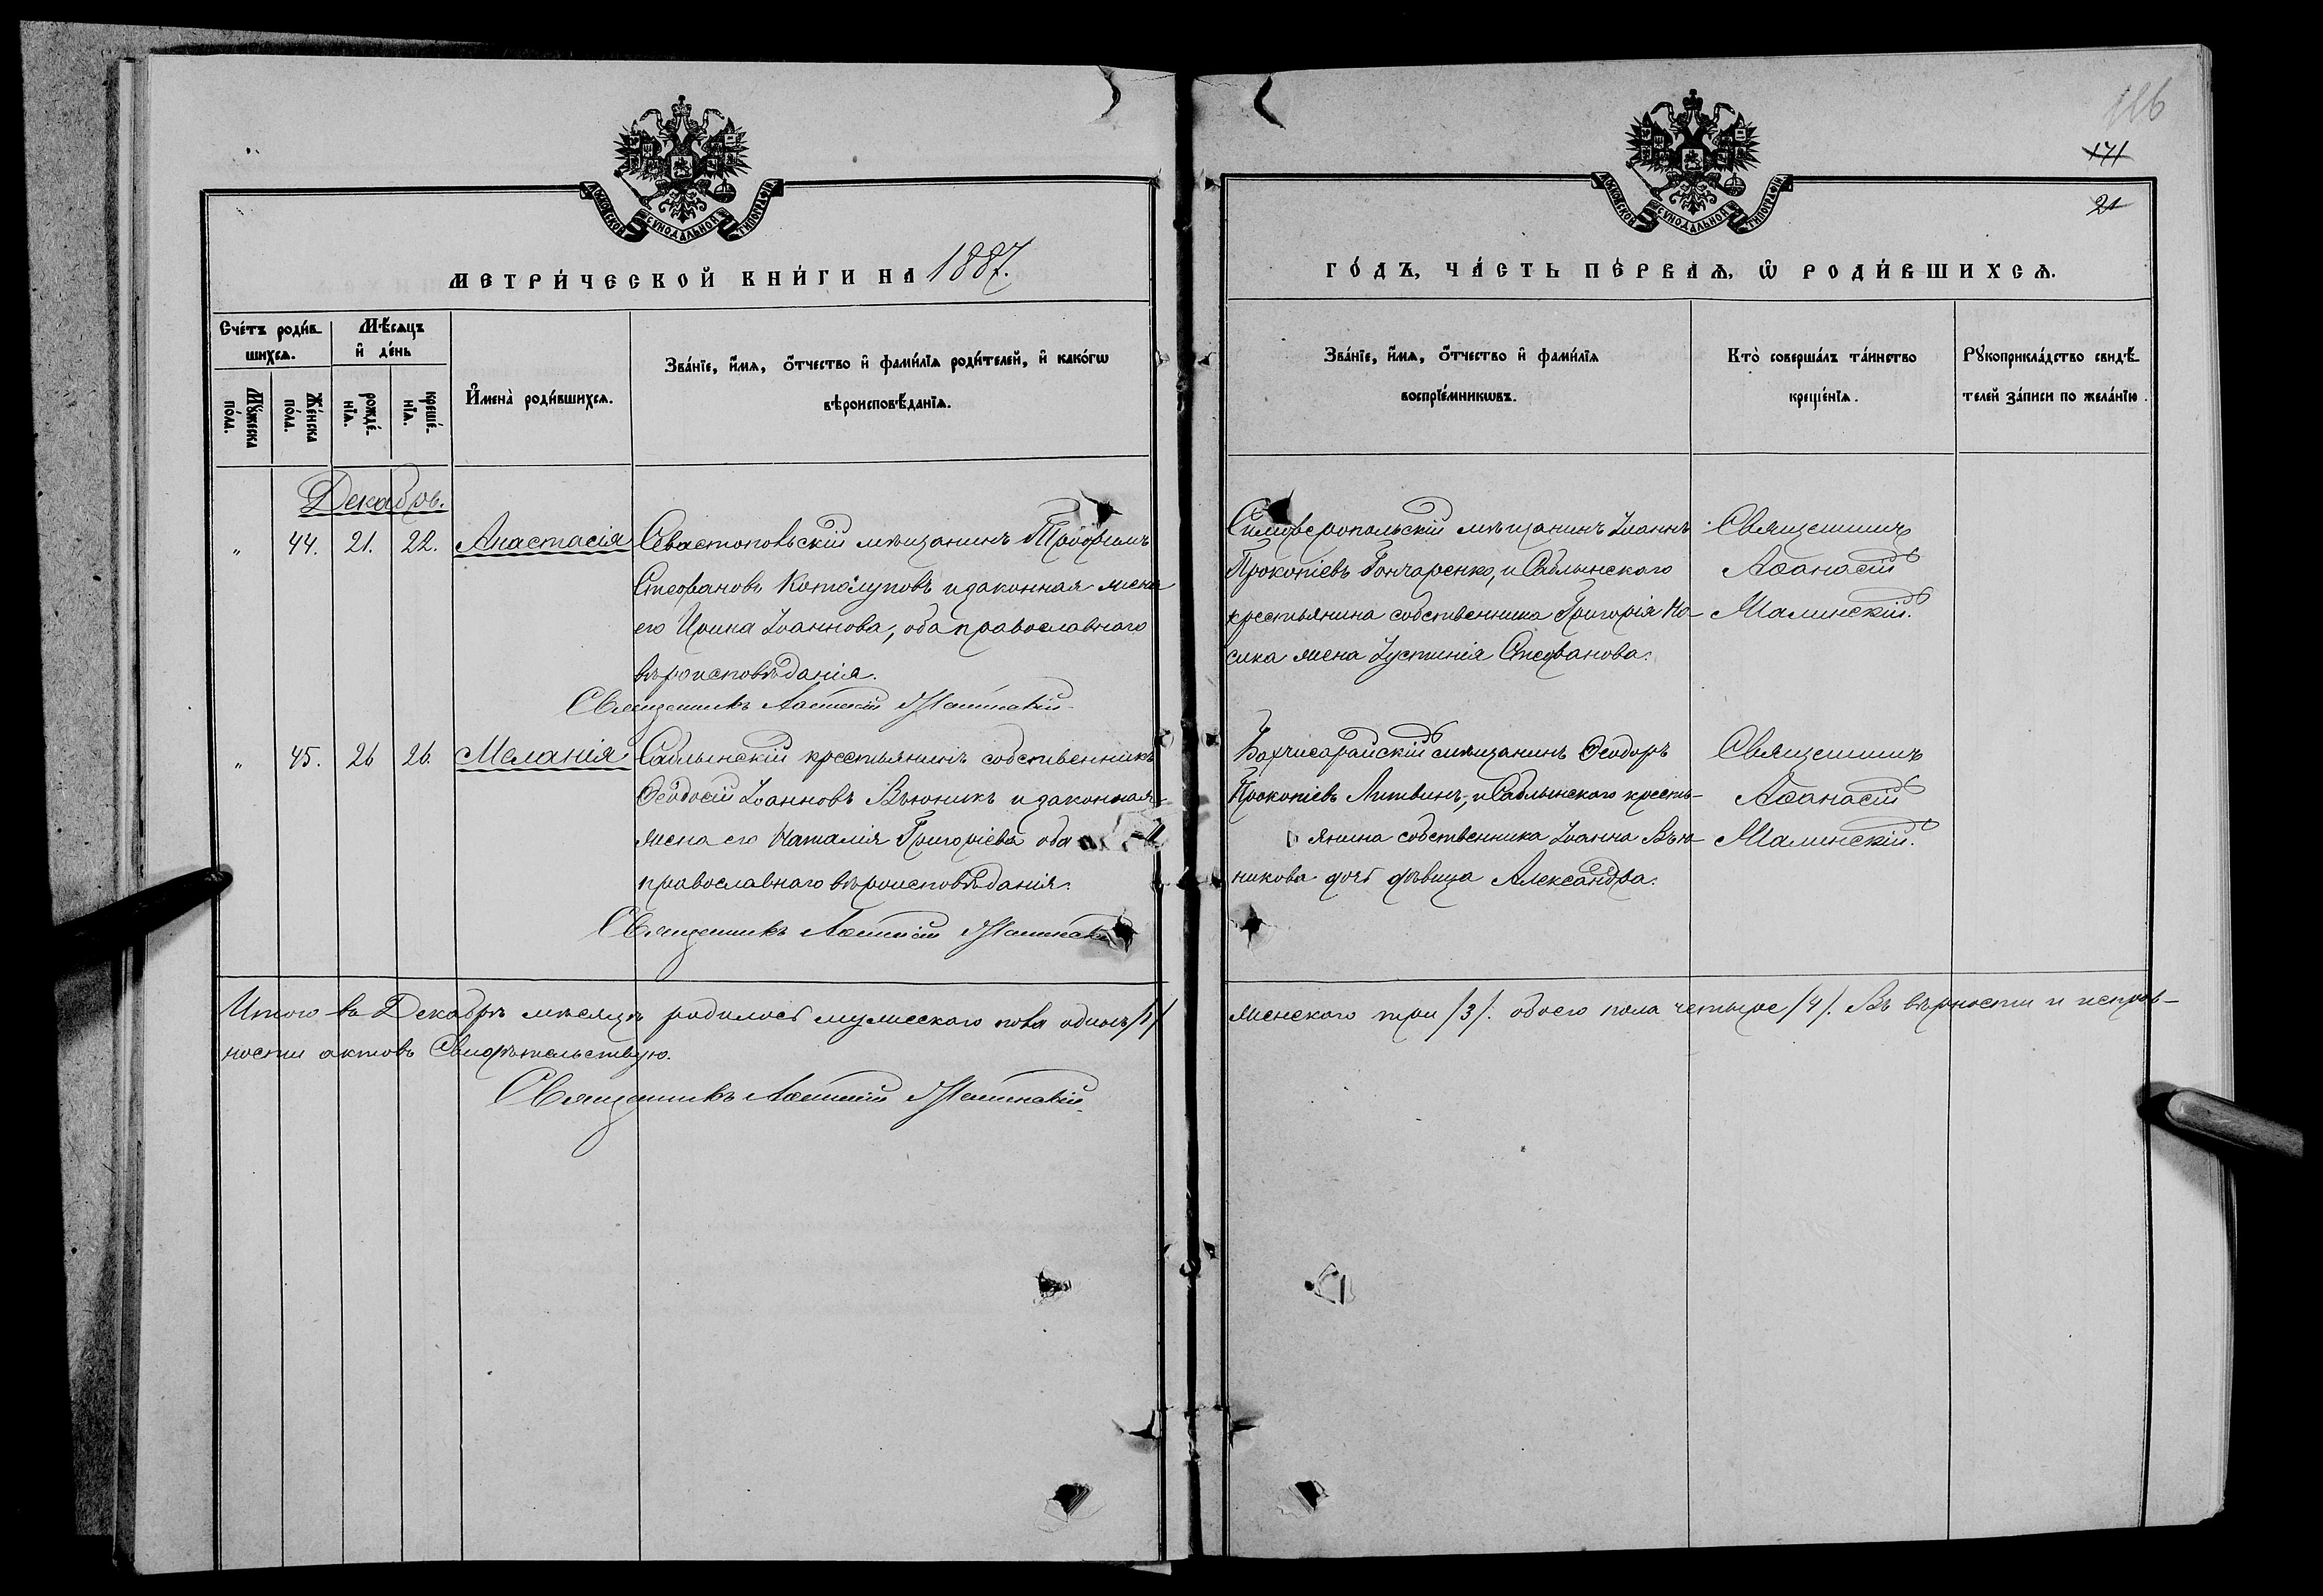 126
171
21
МОСКОВСКОЙ СѴНОДАЛЬНОЙ ТИПОГРАФІИ
МОСКОВСКОЙ СѴНОДАЛЬНОЙ ТИПОГРАФІИ
МЕТРИ́ЧЕСКОЙ КНИ́ГИ НА 1887.
ГО́ДЪ, ЧА́СТЬ ПЕ́РВАѦ, Ѽ РОДИ́ВШИХСѦ.
Сче́тъ роди́в-
шихсѧ.
Мѣ́сѧцъ
и҆ де́нь
Мꙋ́жеска по́ла.
Же́нска по́ла.
рожде́-нїѧ.
креще́-нїѧ.
И҆мена̀ роди́вшихсѧ.
Зва́нїе, и҆́мѧ, ѻ҆́тчество и҆ фами́лїѧ роди́телей, и҆ како́гѡ
вѣроисповѣ́данїѧ.
Зва́нїе, и҆́мѧ, ѻ҆́тчество и҆ фами́лїѧ
воспрїе́мникѡвъ.
Кто̀ соверша́лъ та́инство
креще́нїѧ.
Рꙋкоприкла́дство свидѣ́-
телей за́писи по жела́нїю.
Декабрь.
" 44. 21. 22. Анастасія Севастопольскій мѣщанинъ Трофимъ
Стефановъ Котолуповъ и законная жена
его Ирина Іоаннова, оба православнаго
вѣроисповѣданія.
Священникъ Аѳанасій Малинскій
Симферопольскій мѣщанинъ Іоаннъ
Прокопіевъ Гончаренко, и Саблынского
крестьянина собственника Григорія Но-
сика жена Іустинія Стефанова.
Священникъ
Аѳанасій
Малинскій.
" 45. 26 26. Меланія Саблынскій крестьянинъ собственникъ
Ѳеодосій Іоанновъ Вьюникъ и законная
жена его Наталія Григоріева оба
православнаго вѣроисповѣданія.
Священникъ Аѳанасій Малинскій
Бахчисарайскій мѣщанинъ Ѳеодоръ
Прокопіевъ Литвинъ, и Саблынского кресть-
янина собственника Іоанна Вью-
никова дочь дѣвица Александра.
Священникъ
Аѳанасій
Малинскій.
Итого въ Декабрѣ мѣсяцѣ родилось мужескаго пола одинъ /1/
женского три /3/. обоего пола четыре /4/. Въ вѣрности и исправ-
ности актовъ Свидѣтельствую.
Священникъ Аѳанасій Малинскій